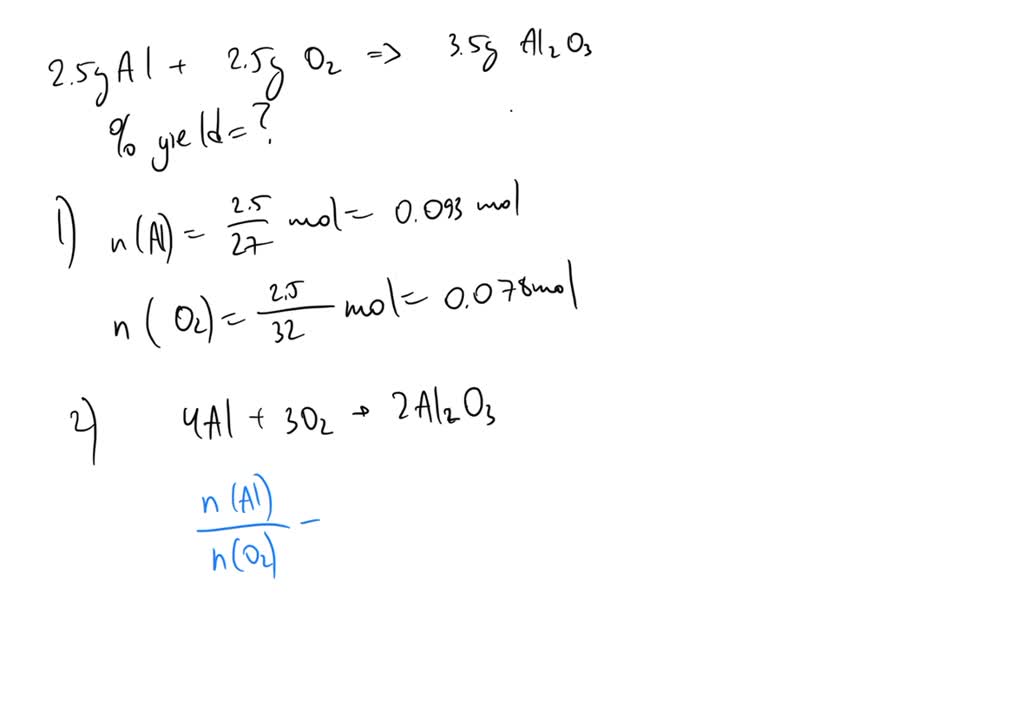 2.5g Al + 2.5g O₂ => 3.5g Al₂O₃
% yield = ?
1) n(Al) = 2.5/27 mol = 0.093 mol
n(O₂) = 2.5/32 mol = 0.078 mol
2) 4Al + 3O₂ → 2Al₂O₃
n(Al)/n(O₂) =